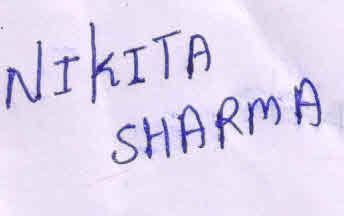 NIKITA
SHARMA